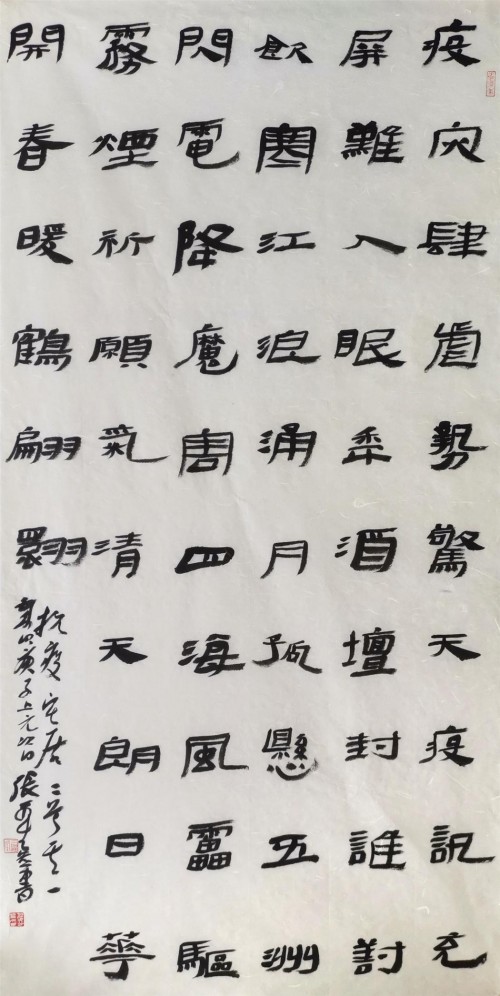 疫灾肆虐勢驚天疫訊充
屏難入眠秊酒壇封誰討
飲寒江浪涌月孤懸五洲
閃電降魔害四海風雷驅
霧煙祈願氣清天朗日華
開春暖鶴翩翾
抗疫宅居二首其一
庚子上元 張 書